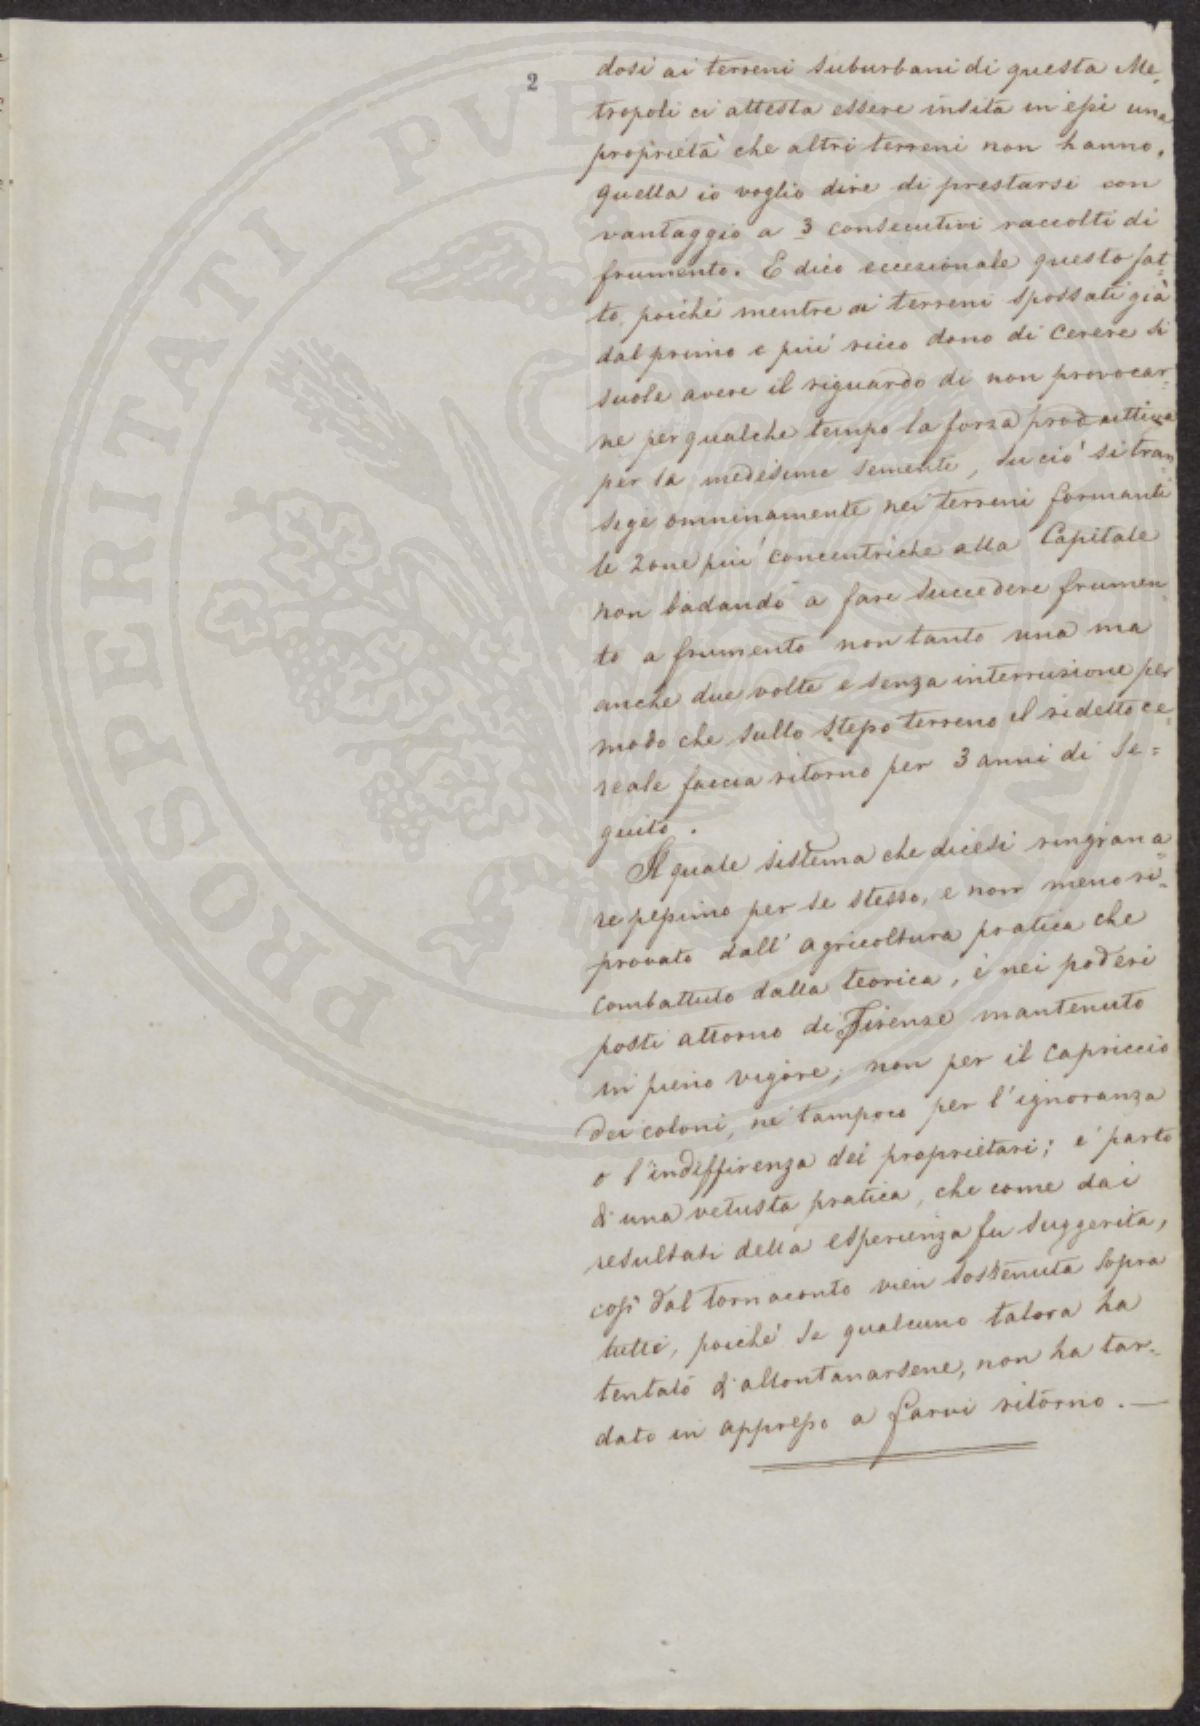 2
dosi ai terreni suburbani di questa Me-
tropoli ci attesta essere insita in essi una
proprietà che altri terreni non hanno,
quella io voglio dire di prestarsi con
vantaggio a 3 consecutivi raccolti di
frumento. E dico eccezionale questo fat-
to, poiché mentre ai terreni spossati già
dal primo e più ricco dono di Cerere si
suole avere il riguardo di non provocar-
ne per qualche tempo la forza produttiva
per la medesime semente, su ciò si tran-
sige omninamente nei terreni formanti
le Zone più concentriche alla Capitale
non badando a fare succedere frumen-
to a frumento non tanto una ma
anche due volte e senza interruzione per
modo che sullo stesso terreno il ridetto ce-
reale faccia ritorno per 3 anni di se=
guito.
Il quale sistema che dicesi ringrana=
re pessimo per se stesso, e non meno ri=
provato dall'agricoltura pratica che
combattuto dalla teorica, è nei poderi
posti attorno di Firenze mantenuto
in pieno vigore; non per il capriccio
dei coloni, né tampoco per l'ignoranza
o l'indifferenza dei proprietari; è parto
d'una vetusta pratica, che come dai
resultati della esperienza fu suggerita,
così dal tornaconto vien sostenuta sopra
tutti, poiché se qualcuno talora ha
tentato d'allontanarsene, non ha tar-
dato in appresso a farvi ritorno. —
PROSPERITATI PVBLI